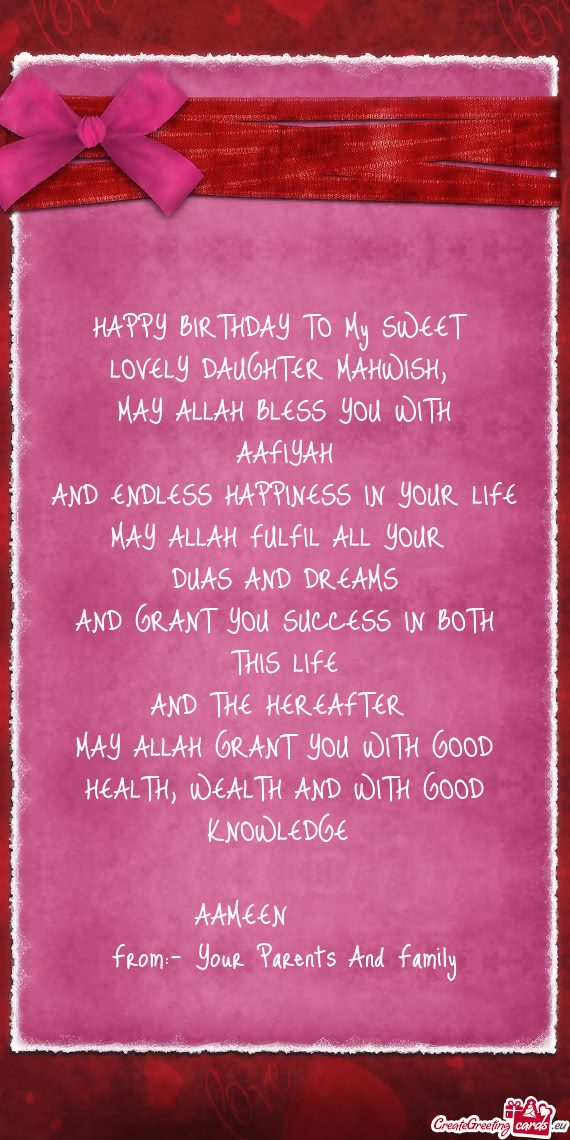 love
HAPPY BIRTHDAY TO My SWEET
LOVELY DAUGHTER MAHWISH,
MAY ALLAH BLESS YOU WITH
AAFIYAH
AND ENDLESS HAPPINESS IN YOUR LIFE
MAY ALLAH FULFIL ALL YOUR
DUAS AND DREAMS
AND GRANT YOU SUCCESS IN BOTH
THIS LIFE
AND THE HEREAFTER
MAY ALLAH GRANT YOU WITH GOOD
HEALTH, WEALTH AND WITH GOOD
KNOWLEDGE
AAMEEN
from:- Your Parents And Family
love
CreateGreetingcards.eu